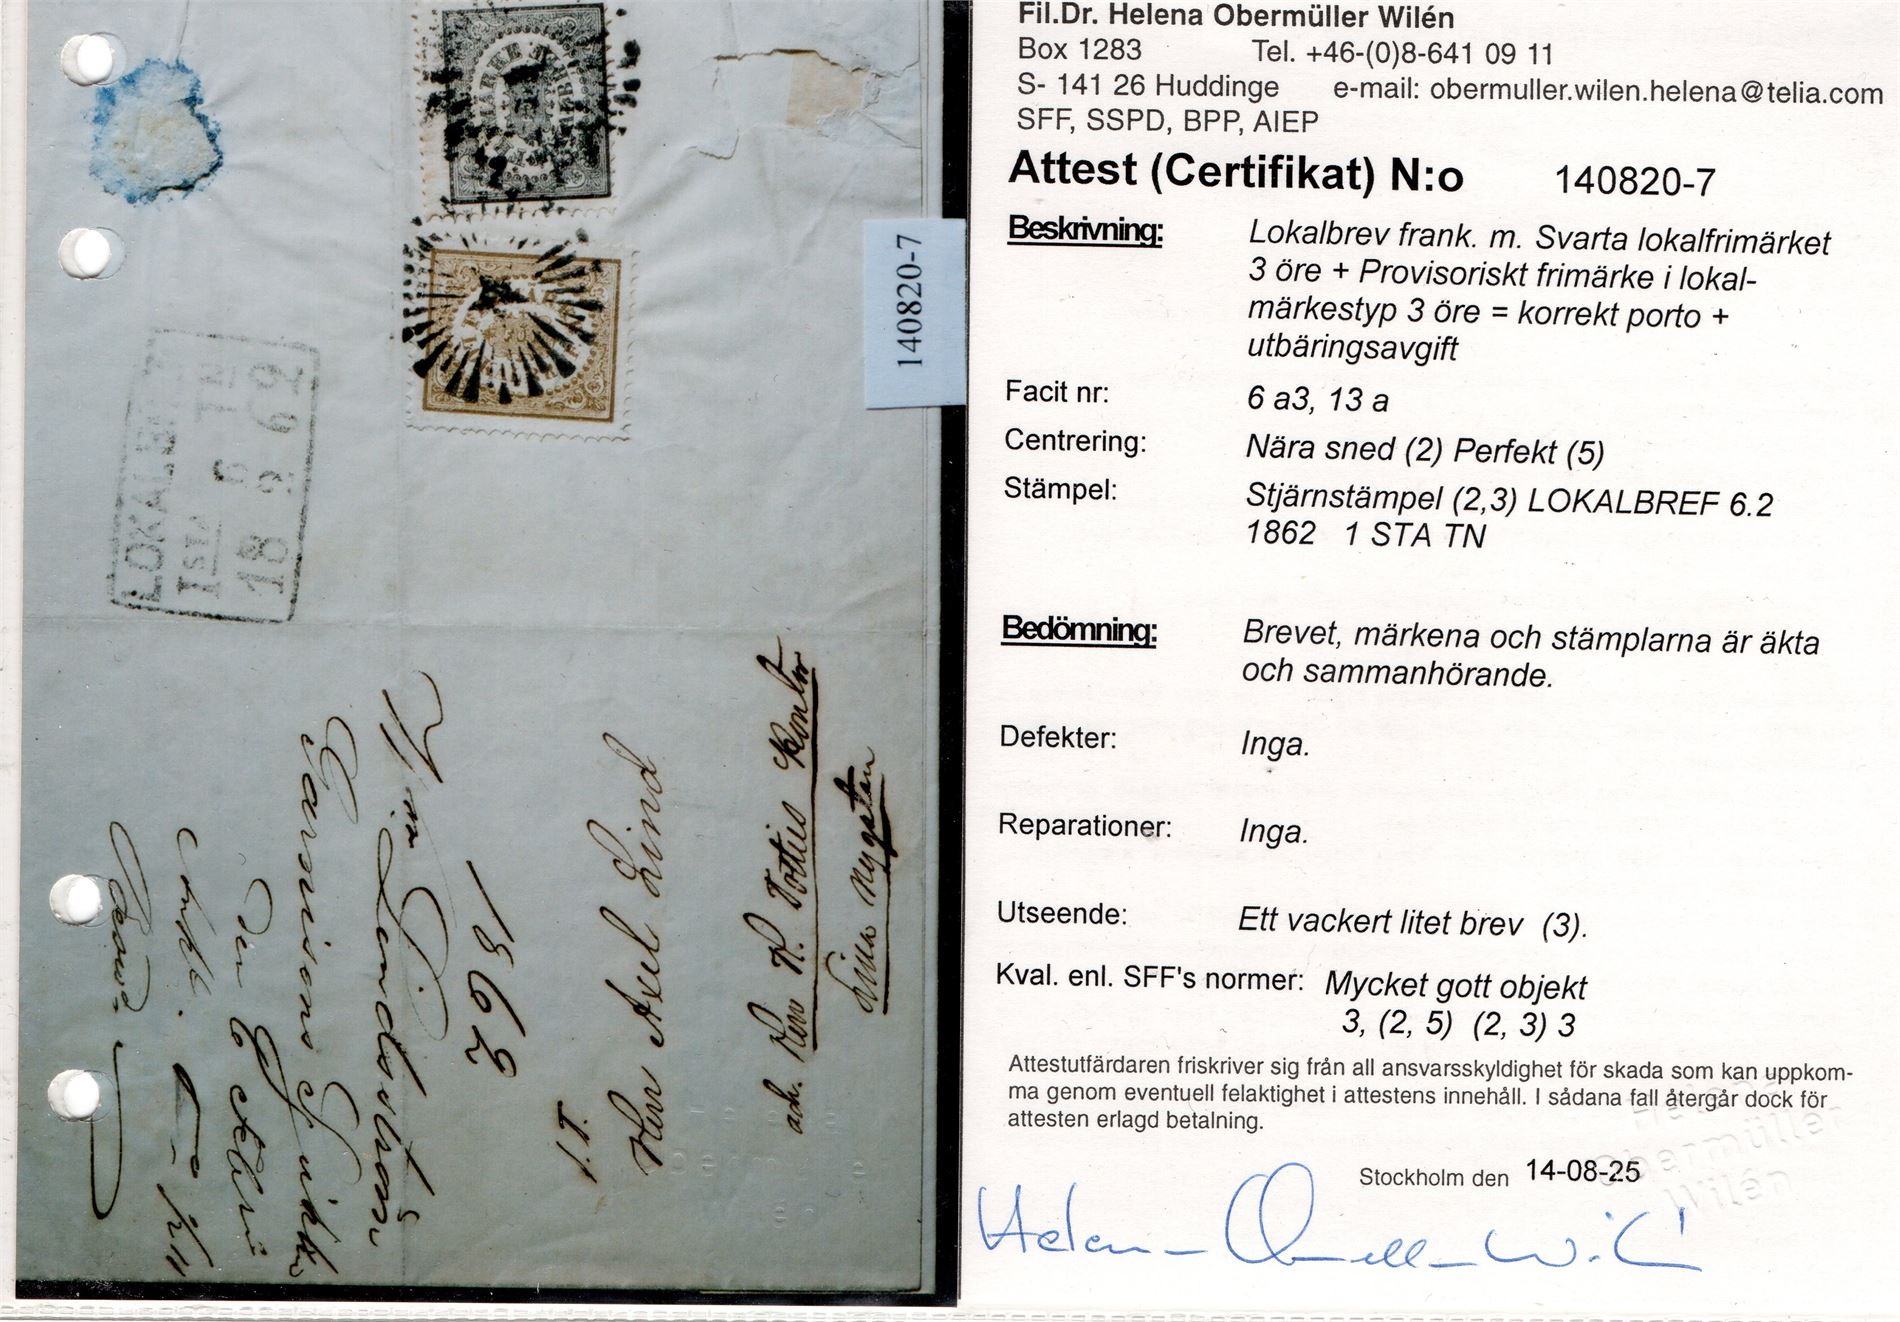 LOKALBREF
1STA 6 TN
18 2 62
140820-7
1862
S.T.
Herr Axel Lind
adr. Herr
Lilla Nygatan
Fil.Dr. Helena Obermüller Wilén
Box 1283 Tel. +46-(0)8-641 09 11
S- 141 26 Huddinge e-mail: obermuller.wilen.helena@telia.com
SFF, SSPD, BPP, AIEP
Attest (Certifikat) N:o 140820-7
Beskrivning: Lokalbrev frank. m. Svarta lokalfrimärket
3 öre + Provisoriskt frimärke i lokal-
märkestyp 3 öre = korrekt porto +
utbäringsavgift
Facit nr: 6 a3, 13 a
Centrering: Nära sned (2) Perfekt (5)
Stämpel: Stjärnstämpel (2,3) LOKALBREF 6.2
1862 1 STA TN
Bedömning: Brevet, märkena och stämplarna är äkta
och sammanhörande.
Defekter: Inga.
Reparationer: Inga.
Utseende: Ett vackert litet brev (3).
Kval. enl. SFF's normer: Mycket gott objekt
3, (2, 5) (2, 3) 3
Attestutfärdaren friskriver sig från all ansvarsskyldighet för skada som kan uppkom-
ma genom eventuell felaktighet i attestens innehåll. I sådana fall återgår dock för
attesten erlagd betalning.
Helena
Obermüller
Wilén
Stockholm den 14-08-25
Helena Obermüller Wilén